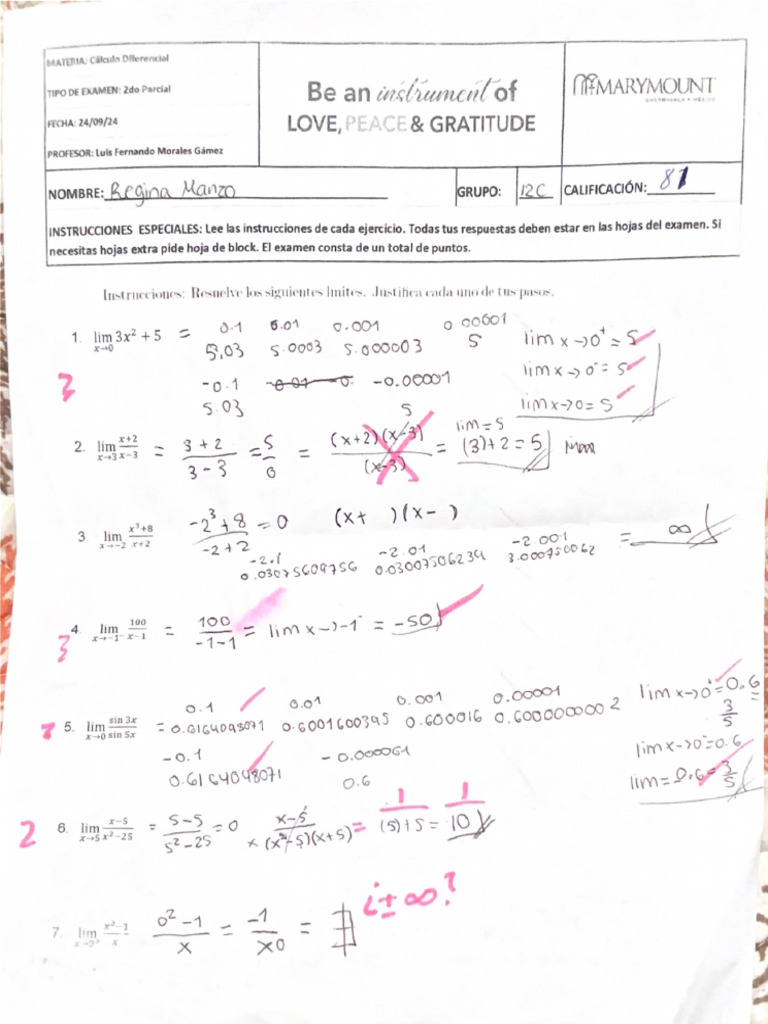 MATERIA: Cálculo Diferencial
TIPO DE EXAMEN: 2do Parcial
FECHA: 24/09/24
PROFESOR: Luis Fernando Morales Gámez
Be an instrument of
LOVE, PEACE & GRATITUDE
MARYMOUNT
CUERNAVACA • MÉXICO
NOMBRE: Regina Manzo GRUPO: 12C CALIFICACIÓN: 81
INSTRUCCIONES ESPECIALES: Lee las instrucciones de cada ejercicio. Todas tus respuestas deben estar en las hojas del examen. Si
necesitas hojas extra pide hoja de block. El examen consta de un total de puntos.
Instrucciones: Resuelve los siguientes lmites. Justifica cada uno de tus pasos.
1. lim x→0 3x² + 5 = 0.1 0.01 0.001 0.00001
5.03 5.0003 5.000003 5
-0.1 -0.01 -0. -0.00001
5.03 5
lim x→0⁺ = 5
lim x→0⁻ = 5
lim x→0 = 5
3
2. lim x→3 x+2/x−3 = 3+2/3-3 = 5/0 = (x+2)(x-3)/(x-3) = lim = 5 (3)+2 = 5
3. lim x→−2 x³+8/x+2 -2³+8/-2+2 = 0 (x+ )(x- )
-2.1 -2.01 -2.001 = ∞
0.03075609756 0.03007506234 3.000750062
3
4. lim x→−1⁻ 100/x−1 = 100/-1-1 = lim x→-1⁻ = -50
5. lim x→0 sin 3x/sin 5x = 0.1 0.01 0.001 0.00001
0.6164048071 0.6001600395 0.600016 0.6000000002
-0.1 -0.000001
0.6164048071 0.6
lim x→0⁺ = 0.6 = 3/5
lim x→0⁻ = 0.6
lim = 0.6 = 3/5
2
6. lim x→5 x−5/x²−25 = 5-5/5²-25 = 0 x-5/(x-5)(x+5) = 1/(5)+5 = 1/10
7. lim x→0⁺ x²−1/x 0²-1/x = -1/x0 = ∄ ¿±∞?